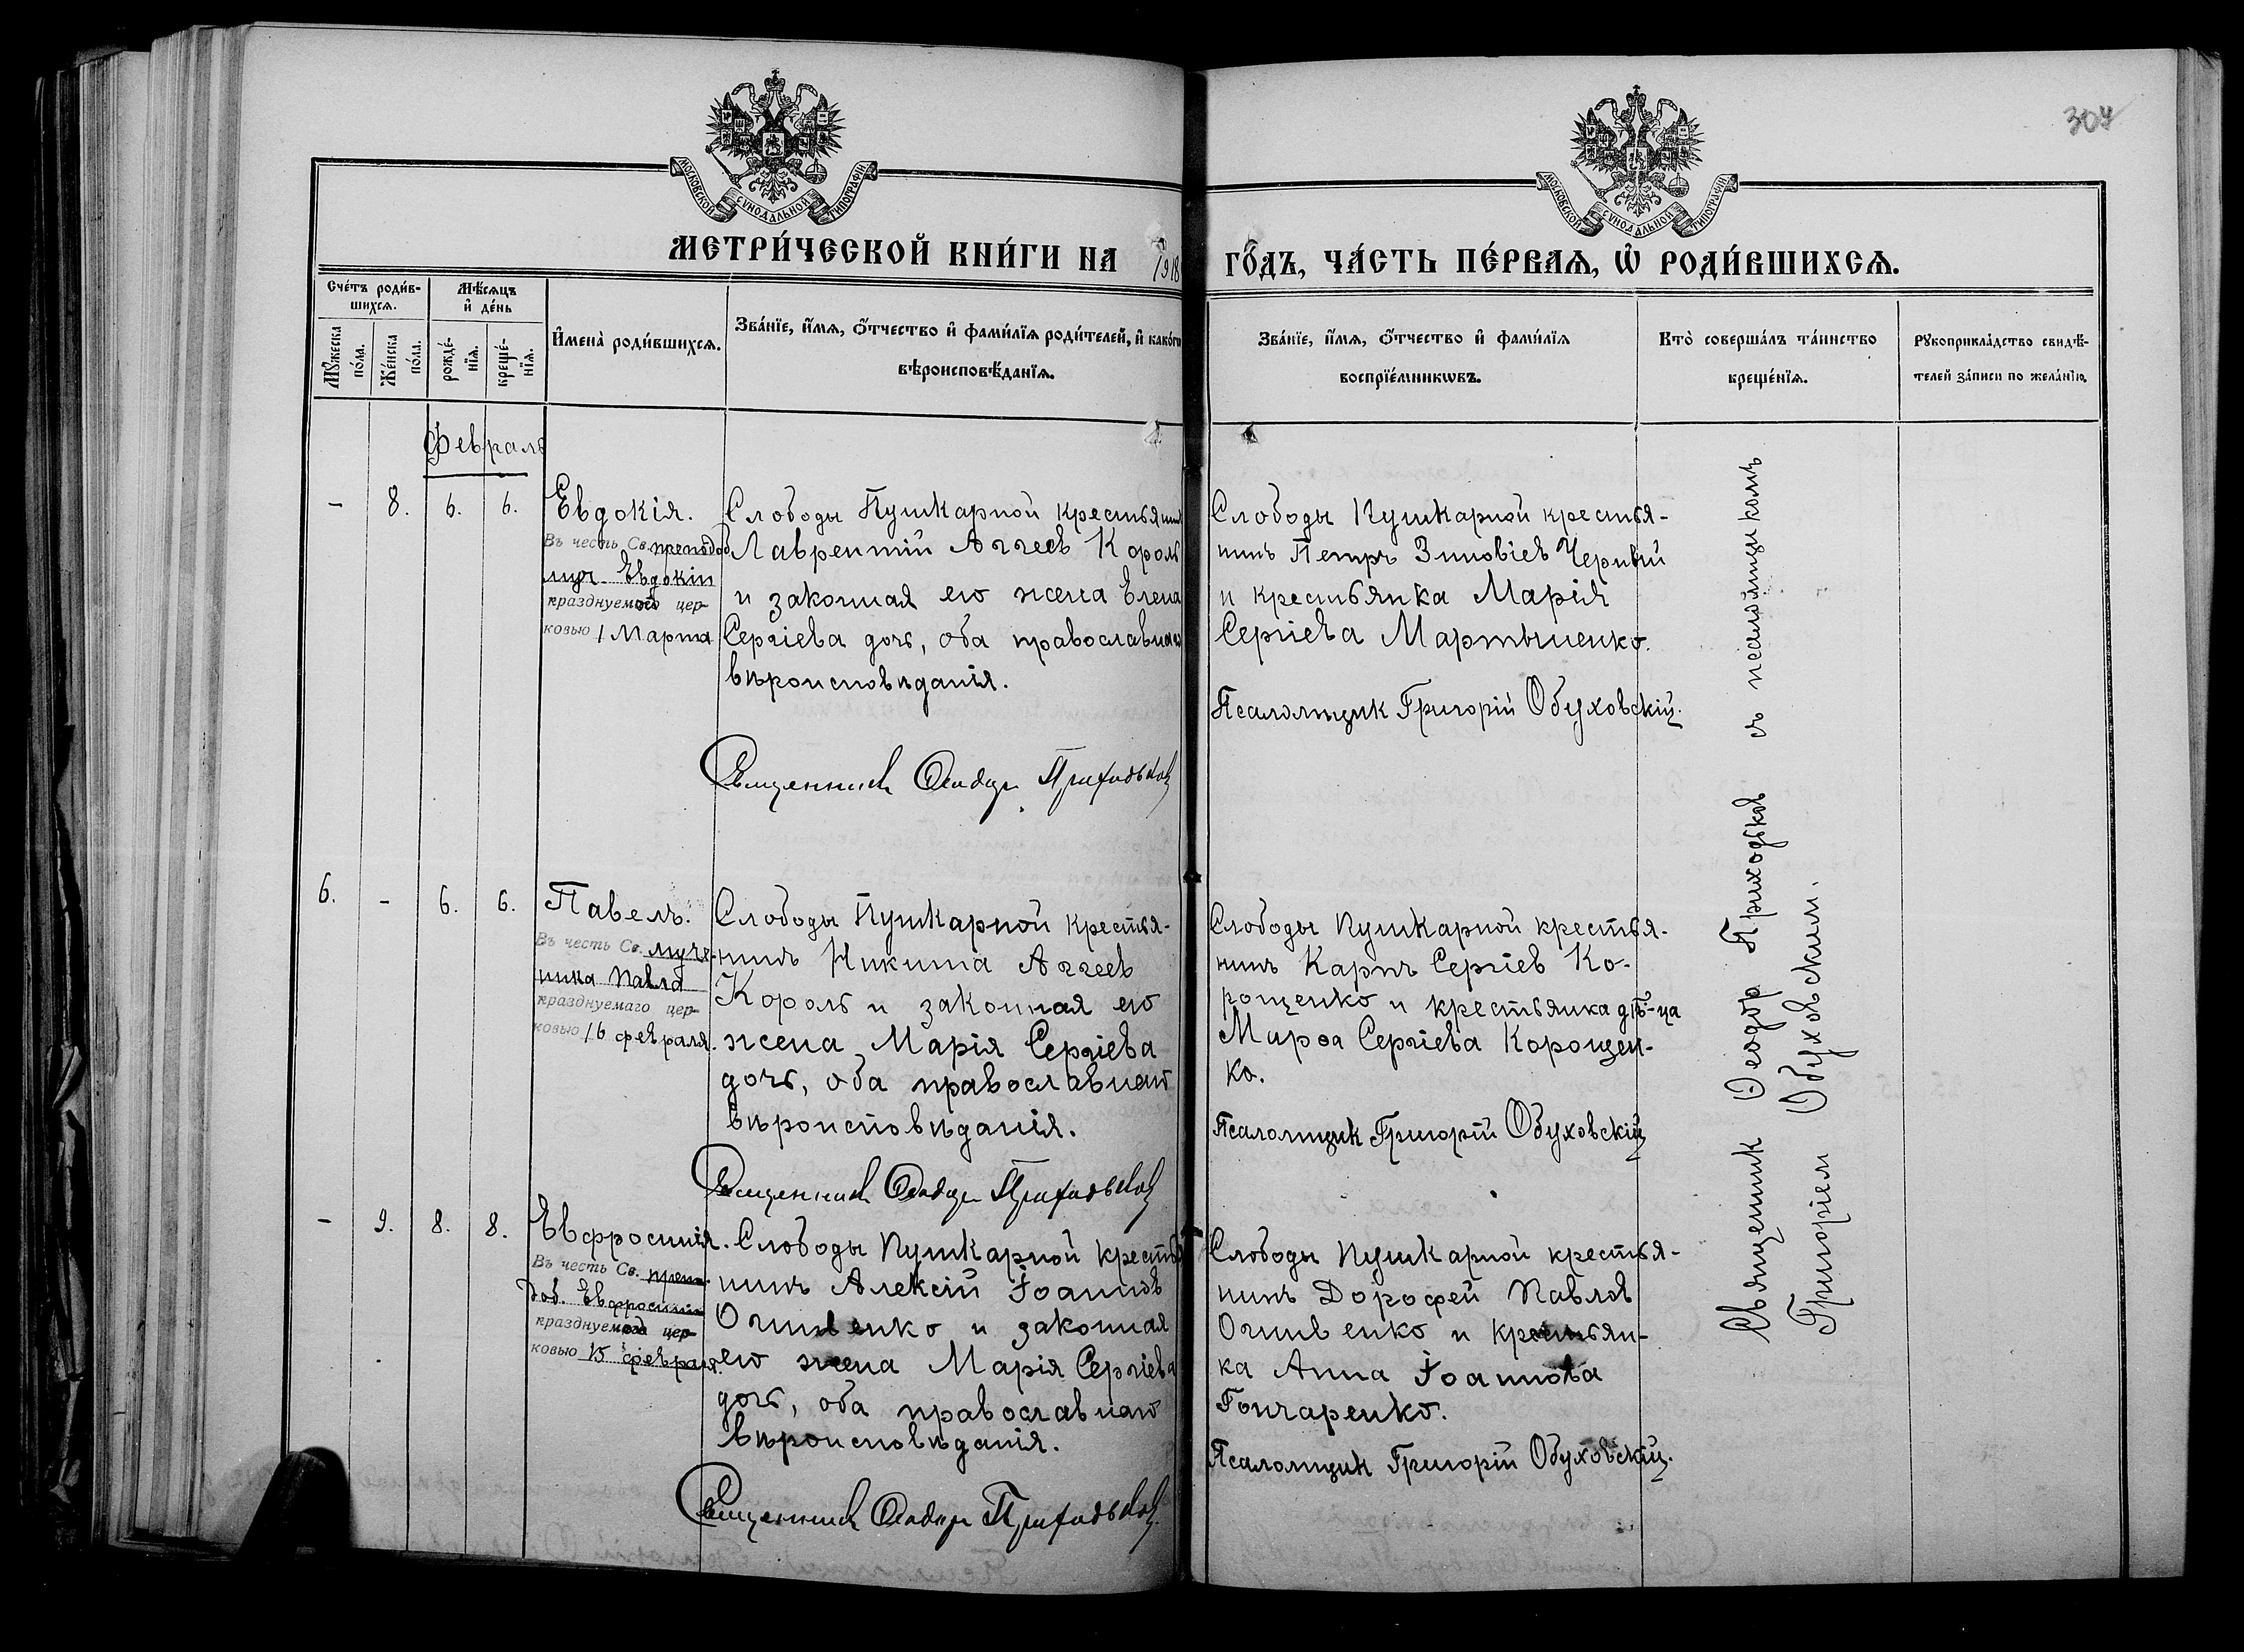 304
МОСКОВСКОЙ СѴНОДАЛЬНОЙ ТИПОГРАФІИ
МОСКОВСКОЙ СѴНОДАЛЬНОЙ ТИПОГРАФІИ
МЕТРИ́ЧЕСКОЙ КНИ́ГИ НА 1918 ГО́ДЪ, ЧА́СТЬ ПЕ́РВАѦ, Ѡ҆ РОДИ́ВШИХСѦ.
Сче́тъ роди́в-
шихсѧ.
Мѣ́сѧцъ
и҆ де́нь
Мꙋ́жеска
по́ла.
Же́нска
по́ла.
рожде́-
нїѧ.
креще́-
нїѧ.
И҆мена̀ роди́вшихсѧ.
Зва́нїе, и҆́мѧ, ѻ҆́тчество и҆ фами́лїѧ роди́телей, и҆ како́гѡ
вѣроисповѣ́данїѧ.
Зва́нїе, и҆́мѧ, ѻ҆́тчество и҆ фами́лїѧ
воспрїе́мникѡвъ.
Кто̀ соверша́лъ та́инство
креще́нїѧ.
Рꙋкоприкла́дство свидѣ́-
телей за́писи по жела́нїю.
Февраль
- 8. 6. 6.
Евдокія.
Въ честь Св. преподоб.
муч. Евдокіи
празднуемой цер-
ковью 1 Марта
Слободы Пушкарной крестьянинъ
Лаврентій Аггеев Король
и законная его жена Елена
Сергіева дочь, оба православнаго
вѣроисповѣданія.
Священникъ Феодоръ Приходьков
Слободы Пушкарной крестья-
нинъ Петръ Зиновіев Черный
и крестьянка Марія
Сергіева Мартыненко.
Псаломщик Григорій Обуховскій.
6. - 6. 6.
Павелъ.
Въ честь Св. муче-
ника Павла
празднуемаго цер-
ковью 16 февраля.
Слободы Пушкарной крестья-
нинъ Никита Аггеев
Король и законная его
жена Марія Сергіева
дочь, оба православнаго
вѣроисповѣданія.
Священникъ Феодоръ Приходьков
Слободы Пушкарной крестья-
нинъ Карпъ Сергіев Ко-
рощенко и крестьянка дѣ-ца
Мирѳа Сергіева Корощен-
ко.
Псаломщик Григорій Обуховскій
- 9. 8. 8.
Евфросинія.
Въ честь Св. препо-
доб. Евфросиніи
празднуемой цер-
ковью 15 февраля.
Слободы Пушкарной крестья-
нинъ Алексій Іоаннов
Огнивенко и законная
его жена Марія Сергіева
дочь, оба православнаго
вѣроисповѣданія.
Священникъ Феодоръ Приходьков.
Слободы Пушкарной крестья-
нинъ Дорофей Павлов
Огнивенко и крестьян-
ка Анна Іоаннова
Гончаренко.
Псаломщик Григорій Обуховскій.
Священник Ѳеодор Приходьков съ псаломщикомъ
Григоріем Обуховским.